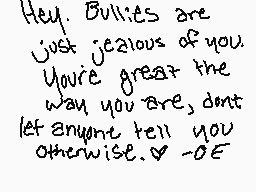 Hey. Bullies are
just jealous of you.
You're great the
way you are, dont
let anyone tell you
otherwise. ♥ -OE